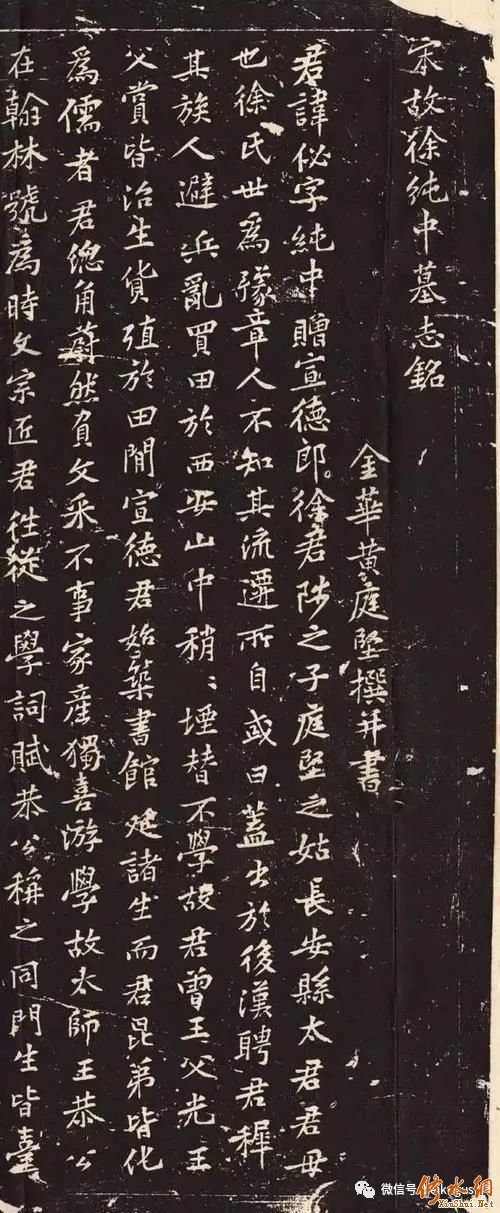 宋故徐純中墓志銘
金華黃庭堅撰并書
君諱佖字純中贈宣德郎徐君陟之子庭堅之姑長安縣太君君母
也徐氏世為豫章人不知其流遷所自或曰蓋出於後漢聘君稺
其族人避兵亂買田於西安山中稍〻堙替不學故君曾王父光王
父賞皆治生貨殖於田閒宣德君始築書館延諸生而君昆弟皆化
為儒者君總角蔚然有文采不事家產獨喜游學故太師王恭公
在翰林號為時文宗匠君往從之學詞賦恭公稱之同門生皆臺
微信号
修水網
XiuShui.Net